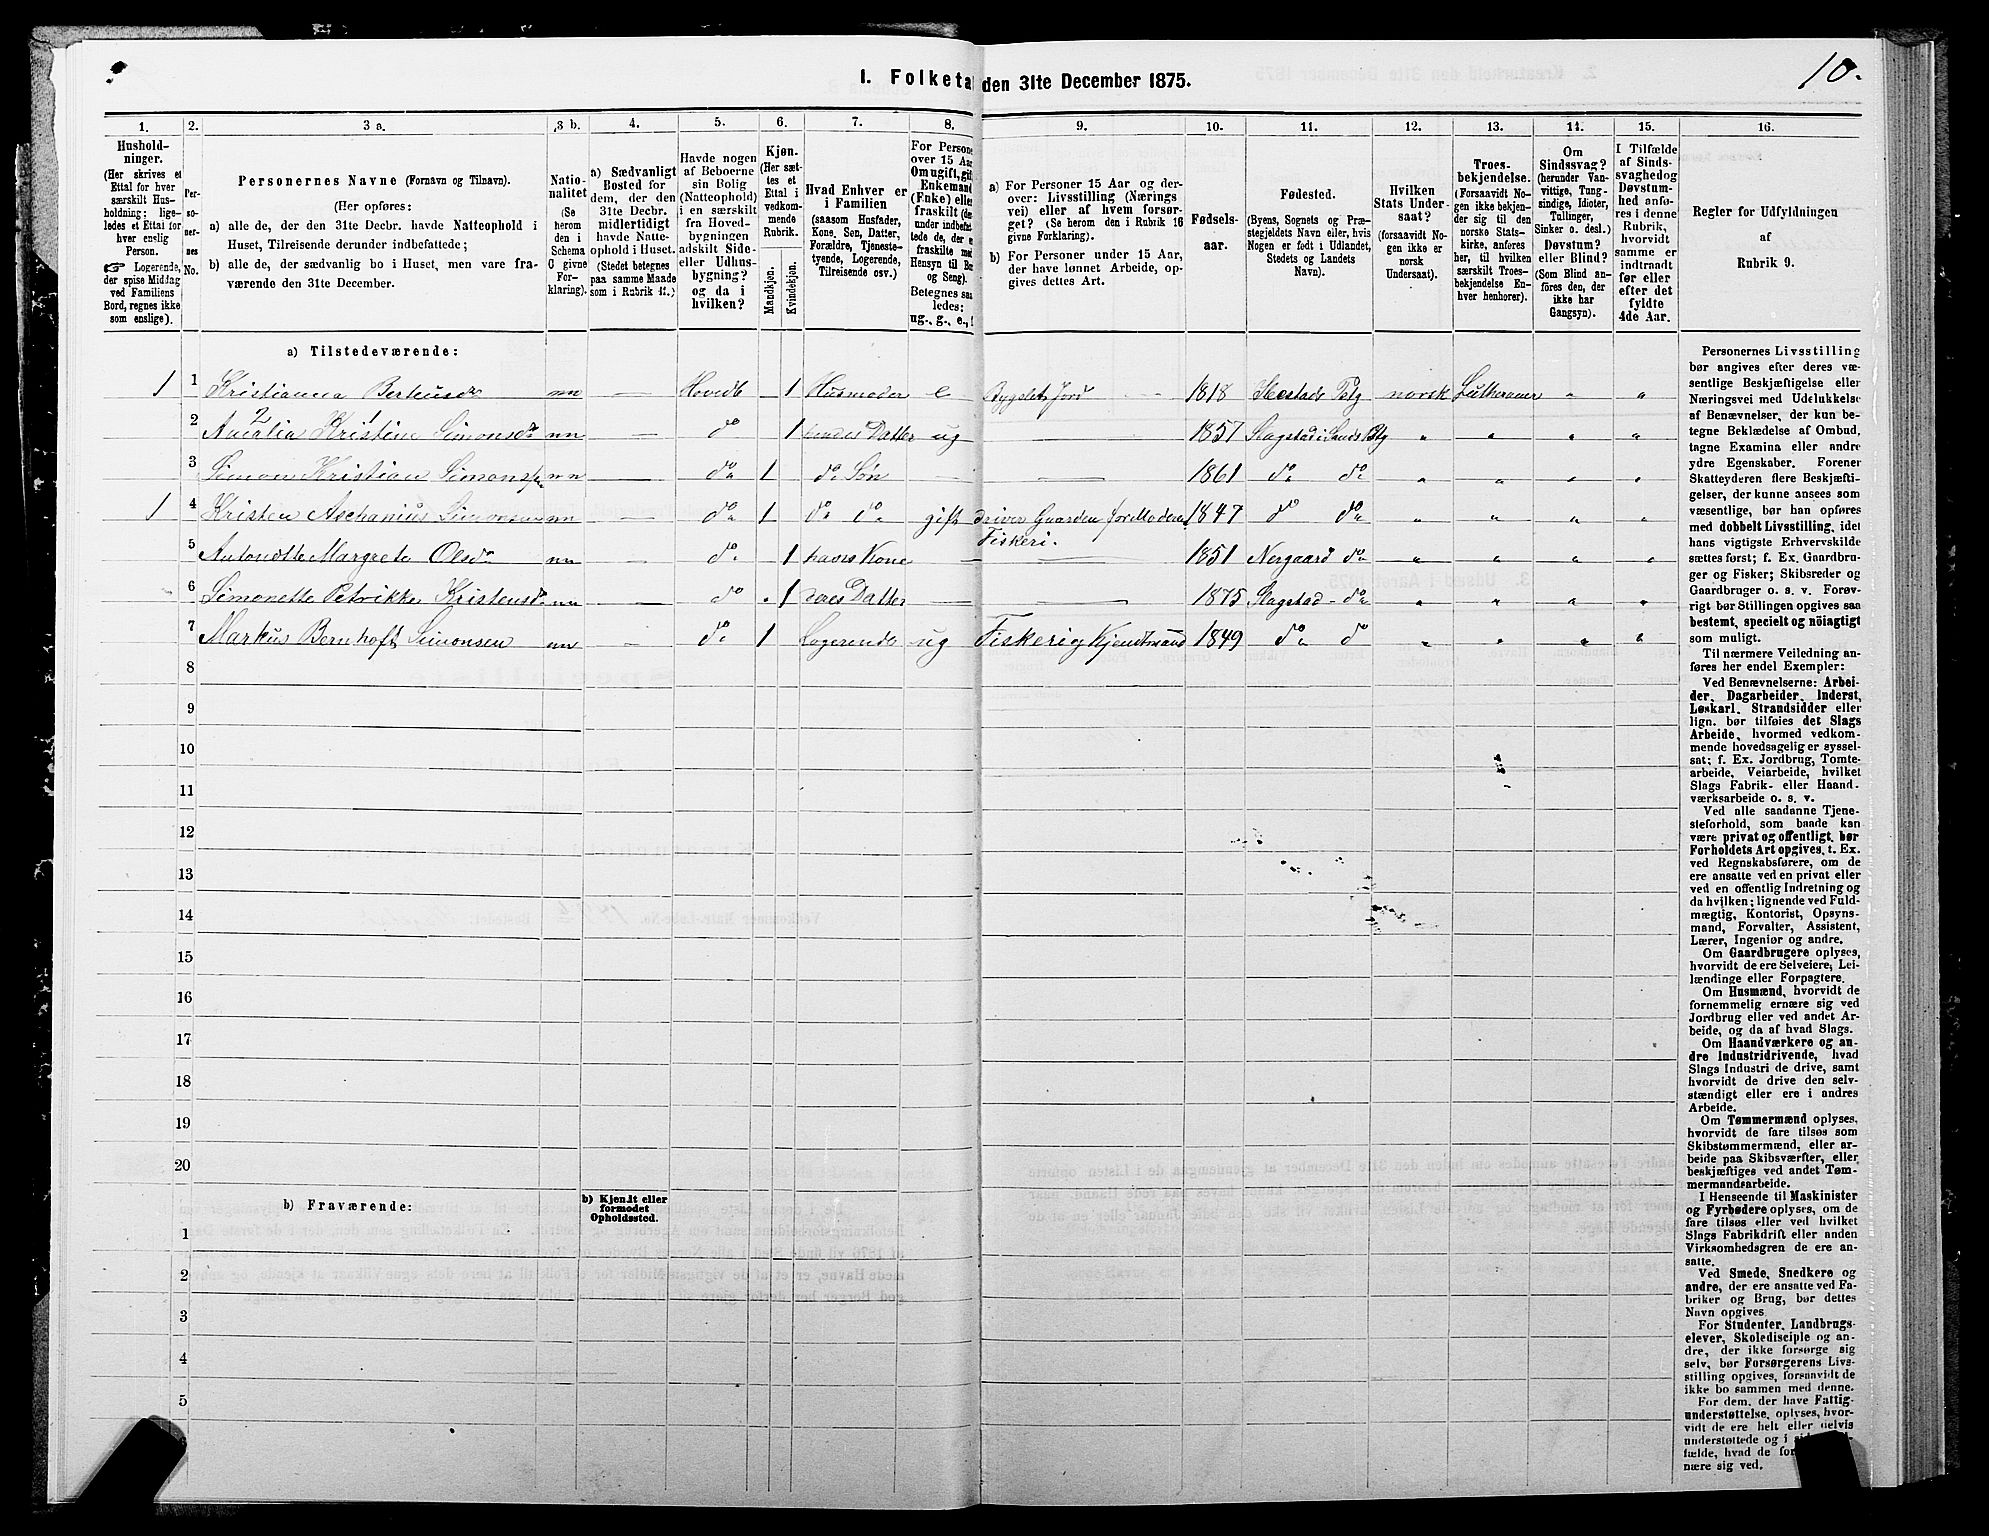 10.
I. Folketal
den 31te December 1875.
1.
2.
3 a.
3 b.
4.
5.
6.
7.
8.
9.
10.
11.
12.
13.
14.
15.
16.
Hushold-
ninger.
(Her skrives et
Ettal for hver
særskilt Hus-
holdning; lige-
ledes et Ettal for
hver enslig
Person.
☞ Logerende,
der spise Middag
ved Familiens
Bord, regnes ikke
som enslige).
Per-
so-
ner-
nes
No.
Personernes Navne (Fornavn og Tilnavn).
(Her opføres:
a) alle de, der den 31te Decbr. havde Natteophold i
Huset, Tilreisende derunder indbefattede;
b) alle de, der sædvanlig bo i Huset, men vare fra-
værende den 31te December.
Natio-
nalitet
(Se
herom
den i
Schema
G givne
For-
klaring).
a) Sædvanligt
Bosted for
dem, der den
31te Decbr.
midlertidigt
havde Natte-
ophold i Huset.
(Stedet betegnes
paa samme Maade
som i Rubrik 11.)
Havde nogen
af Beboerne
sin Bolig
(Natteophold)
i en særskilt
fra Hoved-
bygningen
adskilt Side-
eller Udhus-
bygning?
og da i
hvilken?
Kjøn.
(Her sæt-
tes et
Ettal i
vedkom-
mende
Rubrik.
Mandkjøn.
Kvindekjøn.
Hvad Enhver er
i Familien
(saasom Husfader,
Kone, Søn, Datter,
Forældre, Tjeneste-
tyende, Logerende,
Tilreisende osv.)
For Persone
over 15 Aa
Om ugift, gif
Enkemand
(Enke) elle
fraskilt (de
under indbefat
tede de, der e
fraskilte me
Hensyn til Bo
og Seng).
Betegnes saa
ledes:
ug., g., e., f
a) For Personer 15 Aar og der-
over: Livsstilling (Nærings
vei) eller af hvem forsør-
get? (Se herom den i Rubrik 16
givne Forklaring).
b) For Personer under 15 Aar,
der have lønnet Arbeide, op-
gives dettes Art.
Fødsels-
aar.
Fødested.
(Byens, Sognets og Præ-
stegjeldets Navn eller, hvis
Nogen er født i Udlandet,
Stedets og Landets
Navn).
Hvilken
Stats Under-
saat?
(forsaavidt No-
gen ikke er
norsk
Undersaat).
Troes-
bekjendelse.
(Forsaavidt No-
gen ikke bekjen-
der sig til den
norske Stats-
kirke, anføres
her, til hvilken
særskilt Troes-
bekjendelse En-
hver henhorer).
Om
Sindssvag?
(herunder Van-
vittige, Tung-
sindige, Idioter,
Tullinger,
Sinker o. desl.)
Døvstum?
eller Blind?
(Som Blind an-
føres den, der
ikke har
Gangsyn).
I Tilfælde
af Sinds-
svaghed og
Døvstum-
hed anfø-
res i denne
Rubrik,
hvorvidt
samme er
indtraadt
før eller
efter det
fyldte
4de Aar.
Regler for Udfyldningen
af
Rubrik 9.
a) Tilstedeværende:
1 1 Kristianna Berteusdr nn — Hovedb 1 Husmoder e Bygslet Jord 1818 Ibestads Pstg norsk Lutheraner " "
2 1
2 Amalia Kristine Simonsdr nn — do 1 hendes Datter ug — 1857 Slagstad i Sands Pstg " " " "
3 Simon Kristian Simonsen nn — do 1 do Søn — — 1861 do do " " " "
1 4 Kristen Aschanius Simonsen nn — do 1 do do gift driver Gaarden for Moderen 1847 do do " " " "
Fiskeri.
5 Antonette Margrete Olsdr nn — do 1 hans Kone — — 1851 Nergaard do " " " "
6 Simonette Petrikke Kristensdr nn — do 1 deres Datter — — 1875 Slagstad do " " " "
7 Markus Bernhoft Simonsen nn — do 1 Logerende ug Fiskeri og Kjendtmand 1849 do do " " " "
8
9
10
11
12
13
14
15
16
17
18
19
20
b) Fraværende:
b) Kjendt eller
formodet
Opholdssted.
1
2
3
4
5
Personernes Livsstilling
bør angives efter deres væ-
sentlige Beskjæftigelse eller
Næringsvei med Udelukkelse
af Benævnelser, der kun be-
tegne Beklædelse af Ombud,
tagne Examina eller andre
ydre Egenskaber. Forener
Skatteyderen flere Beskjæfti-
gelser, der kunne ansees som
væsentlige, bør han opføres
med dobbelt Livsstilling, idet
hans vigtigste Erhvervskilde
sættes først; f. Ex. Gaardbru-
ger og Fisker; Skibsreder og
Gaardbruger o. s. v. Forøv-
rigt bør Stillingen opgives saa
bestemt, specielt og nöiagtigt
som muligt.
Til nærmere Veiledning an-
føres her endel Exempler:
Ved Benævnelserne: Arbei-
der, Dagarbeider, Inderst,
Løskarl, Strandsidder eller
lign. bør tilføies det Slags
Arbeide, hvormed vedkom-
mende hovedsagelig er syssel-
sat; f. Ex. Jordbrug, Tomte-
arbeide, Veiarbeide, hvilket
Slags Fabrik- eller Haand-
værksarbeide o. s. v.
Ved alle saadanne Tjene-
steforhold, som baade kan
være privat og offentligt, bør
Forholdets Art opgives, t. Ex.
ved Regnskabsførere, om de
ere ansatte ved en privat eller
ved en offentlig Indretning og
da hvilken; lignende ved Fuld-
mægtig, Kontorist, Opsyns-
mand, Forvalter, Assistent,
Lærer, Ingeniør og andre.
Om Gaardbrugere oplyses,
hvorvidt de ere Selveiere, Lei-
lændinge eller Forpagtere.
Om Husmænd, hvorvidt de
fornemmelig ernære sig ved
Jordbrug eller ved andet Ar-
beide, og da af hvad Slags.
Om Haandværkere og an-
dre Industridrivende, hvad
Slags Industri de drive, samt
hvorvidt de drive den selv-
stændigt eller ere i andres
Arbeide.
Om Tømmermænd oplyses,
hvorvidt de fare tilsøs som
Skibstømmermænd, eller ar-
beide paa Skibsværfter, eller
beskjæftiges ved andet Tøm-
mermandsarbeide.
I Henseende til Maskinister
og Fyrbødere oplyses, om de
fare tilsøs eller ved hvilket
Slags Fabrikdrift eller anden
Virksomhedsgren de ere an-
satte.
Ved Smede, Snedkere og
andre, der ere ansatte ved Fa-
briker og Brug, bør dettes
Navn opgives
For Studenter, Landbrugs-
elever, Skoledisciple og an-
dre, der ikke forsørge sig
selv, bør Forsørgerens Livs-
stilling opgives, forsaavidt de
ikke bo sammen med denne.
For dem, der have Fattig-
understøttelse, oplyses, hvor-
vidt de ere helt eller delvis
understøttede og i
fælde, hvad de for
nære sig ved.